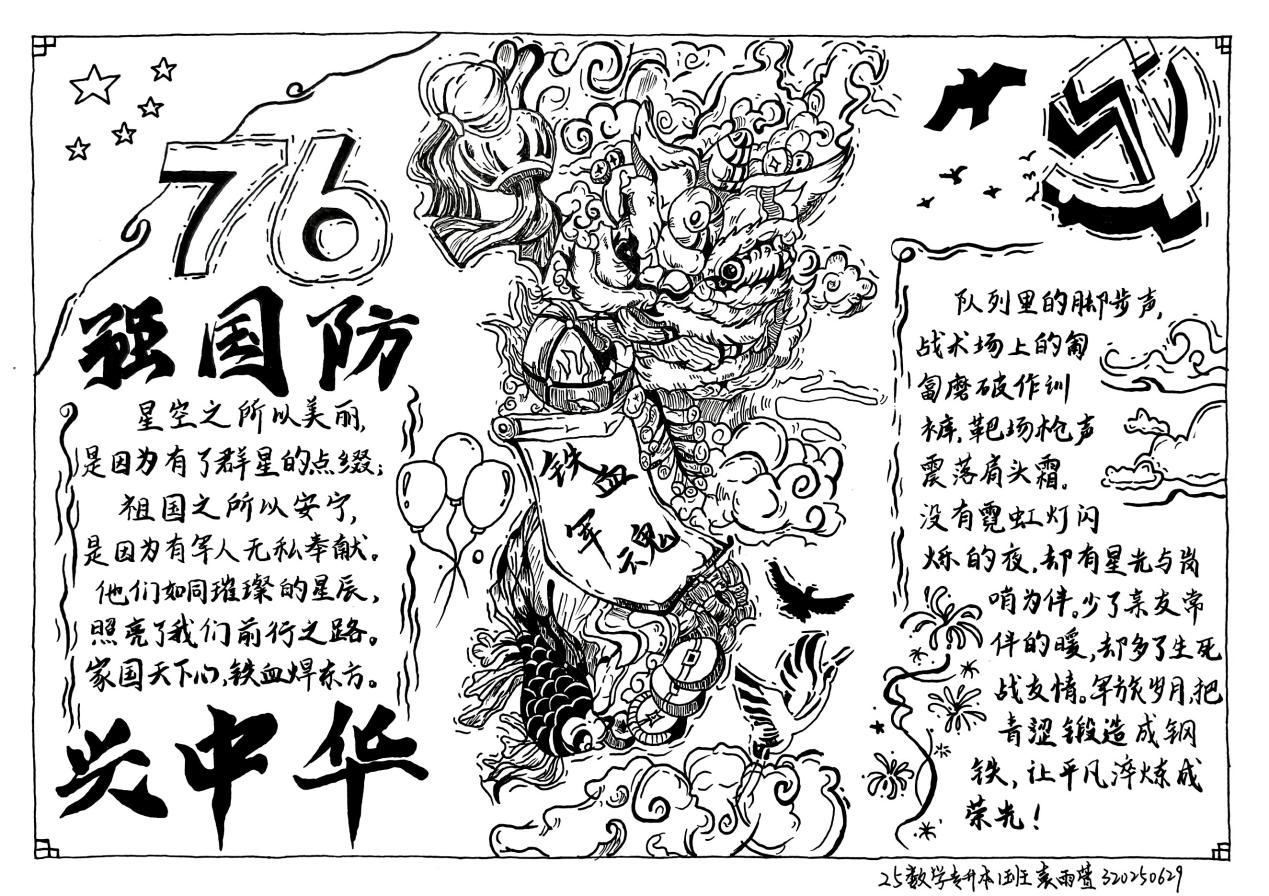 76
强国防
星空之所以美丽,
是因为有了群星的点缀;
祖国之所以安宁,
是因为有军人无私奉献。
他们如同璀璨的星辰,
照亮了我们前行之路。
家国天下心,铁血焊东方。
兴中华
铁血
军魂
队列里的脚步声,
战术场上的匍
匐磨破作训
裤,靶场枪声
震落肩头霜。
没有霓虹灯闪
烁的夜,却有星光与岗
哨为伴。少了亲友常
伴的暖,却多了生死
战友情。军旅岁月,把
青涩锻造成钢
铁,让平凡淬炼成
荣光!
25数学专升本 班 袁雨萱 320250629